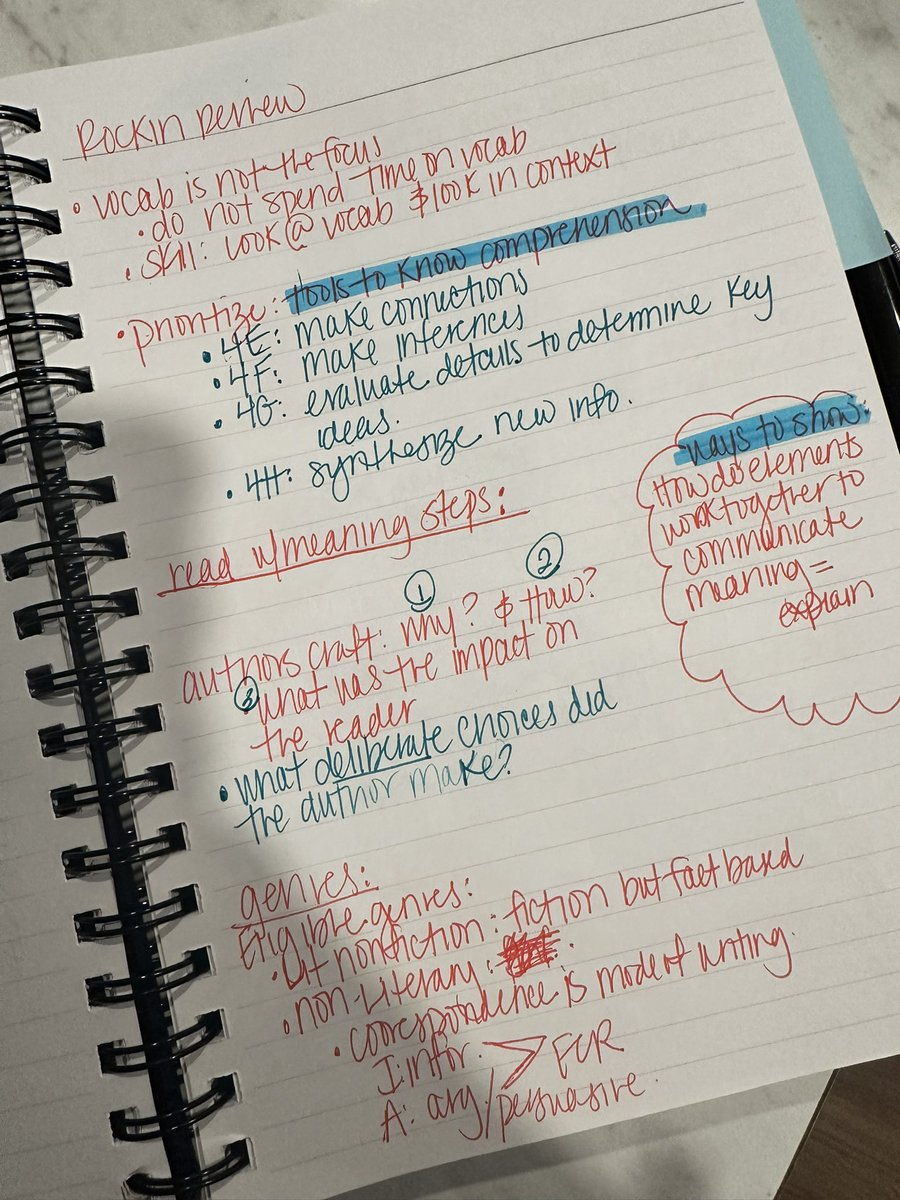 Rockin Review
• vocab is not the focus
• do not spend time on vocab
• skill: look @ vocab & look in context
• prioritize: tools to know comprehension
• 4E: make connections
• 4F: make inferences
• 4G: evaluate details to determine key
ideas.
• 4H: synthesize new info.
ways to show:
How do elements
work together to
communicate
meaning =
explain
read w/meaning steps:
① ②
authors craft: why? & How?
③ • what was the impact on
the reader
• what deliberate choices did
the author make?
genres:
Eligible genres:
• Lit nonfiction: fiction but fact based
• non-Literary:
• coorespondence is mode of writing.
I: infor. > ECR
A: arg/persuasive.